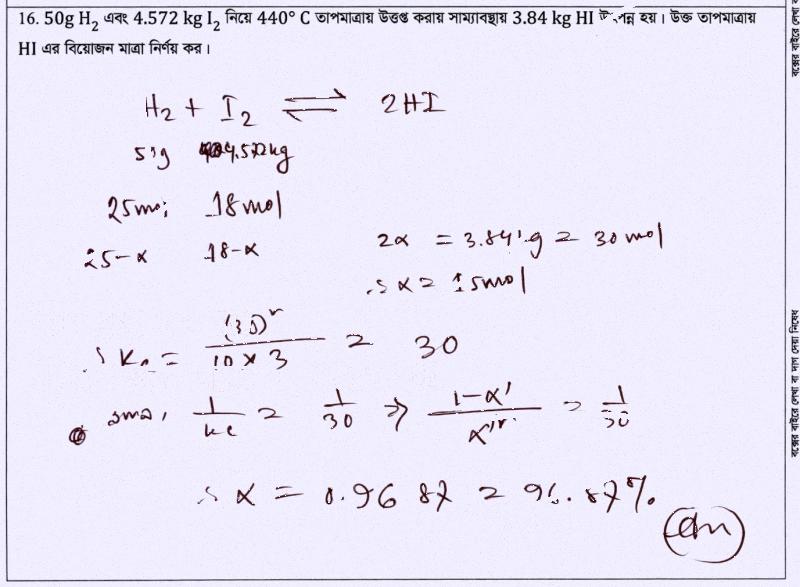 16. 50g H₂ এবং 4.572 kg I₂ নিয়ে 440° C তাপমাত্রায় উত্তপ্ত করায় সাম্যাবস্থায় 3.84 kg HI উৎপন্ন হয়। উক্ত তাপমাত্রায়
HI এর বিয়োজন মাত্রা নির্ণয় কর।
H₂ + I₂ ⇌ 2HI
4.572kg
25mol 18mol
25-α 18-α
2α = 3.84kg = 30 mol
∴ α = 15mol
∴ Kc = (30)² / (10 × 3) = 30
1/Kc = 1/30 ⇒ (1-α') / α'² = 1/30
∴ α = 0.9687 = 96.87%
(Ans)
বক্সের বাইরে লেখা বা দাগ দেয়া নিষেধ